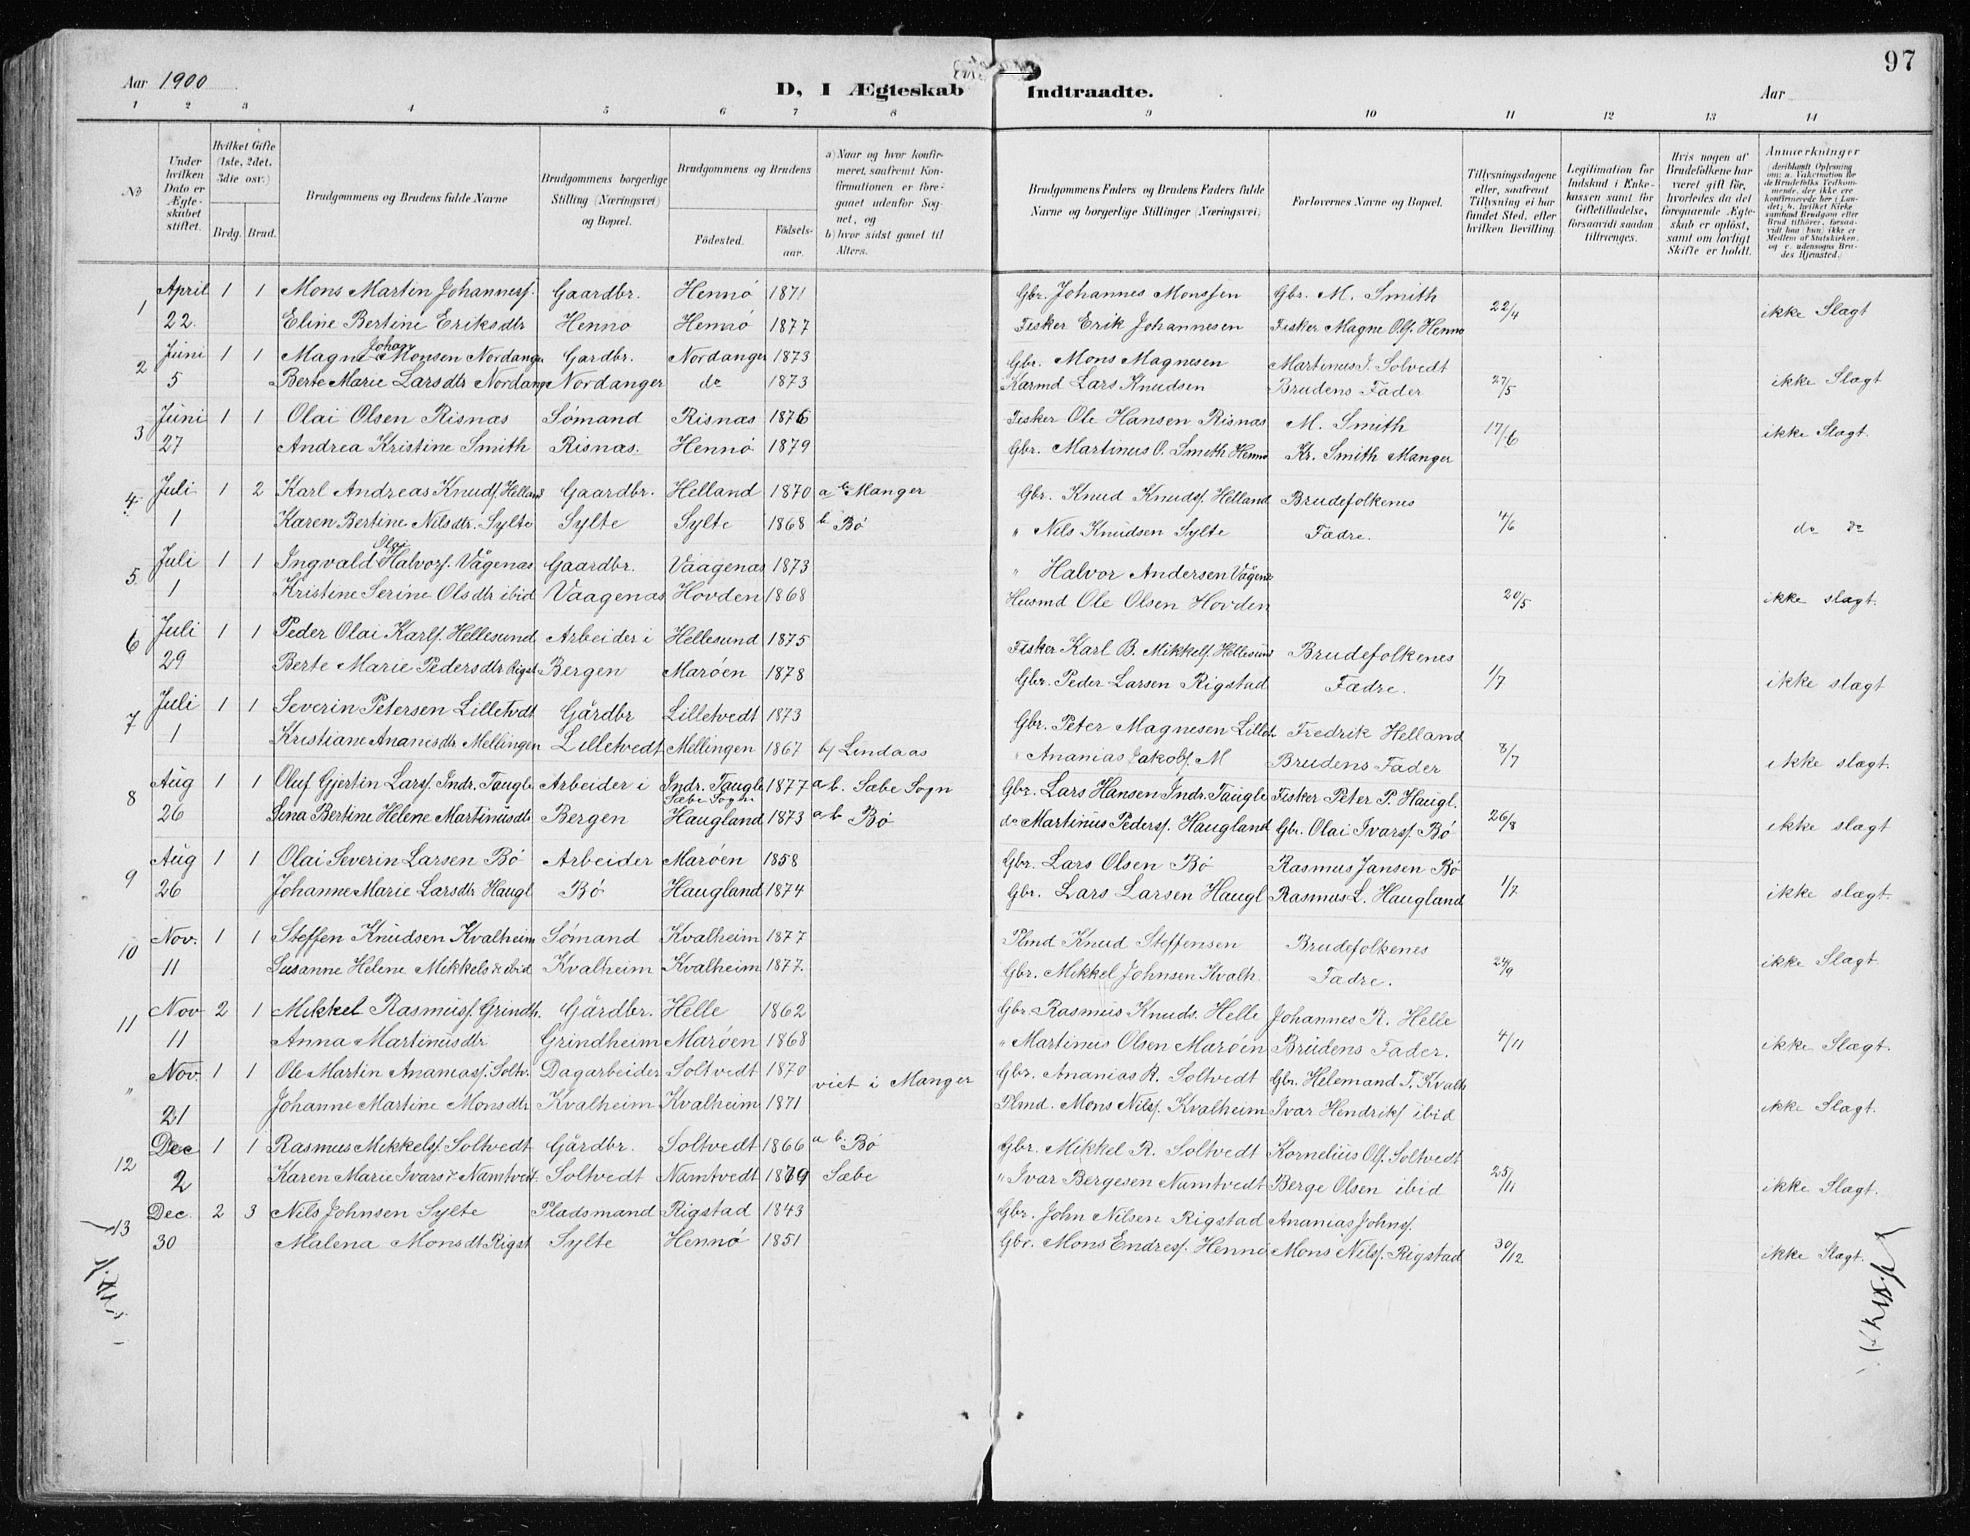 97
Aar 1900
D, I Ægteskab Indtraadte.
Aar
1 2 3 4 5 6 7 8 9 10 11 12 13 14
№
Under hvilken Dato er Ægteskabet stiftet.
Hvilket Gifte (1ste, 2det, 3die osv.)
Brdg. Brud.
Brudgommens og Brudens fulde Navne
Brudgommens borgerlige Stilling (Næringsvei) og Bopæl.
Brudgommens og Brudens
Fødested. Fødselsaar.
a) Naar og hvor konfirmeret, saafremt Konfirmationen er foregaaet udenfor Sognet, og
b) hvor sidst gaaet til Alters.
Brudgommens Faders og Brudens Faders fulde Navne og borgerlige Stillinger (Næringsvei)
Forlovernes Navne og Bopæl.
Tillysningsdagene eller, saafremt Tillysning ei har fundet Sted, efter hvilken Bevilling.
Legitimation for Indskud i Enkekassen samt for Giftetilladelse, forsaavidt saadan tiltrænges.
Hvis nogen af Brudefolkene har været gift før, hvorledes da det foregaaende Ægteskab er opløst, samt om lovligt Skifte er holdt.
Anmærkninger (deriblandt Oplysning om: a. Vakcination for de Brudefolks Vedkommende, der ikke ere konfirmerede her i Landet; b. hvilket Kirkesamfund Brudgom eller Brud tilhører, forsaavidt han (hun) ikke er Medlem af Statskirken, og c. udensogns Brudes Hjemsted.)
1 April 1 1 Mons Martin Johannesf. Gaardbr. Hennø 1871 Gbr. Johannes Monssen Gbr. M. Smith 22/4 ikke Slagt
22. Eline Bertine Eriksdtr Henno Hennø 1877 Fisker Erik Johannesen Fisker Magne Olf. Henno
2 Juni 1 1 Magne Johan Monsen Nordanger Gardbr. Nordanger 1873 Gbr. Mons Magnesen Martinus J. Solvedt 27/5 ikke Slagt
5 Berte Marie Larsdtr Nordange Nordanger do 1873 Karmd Lars Knudsen Brudens Fader
3 Juni 1 1 Olai Olsen Risnas Sømand Risnas 1876 Fisker Ole Hansen Risnas M. Smith 17/6 ikke Slagt.
27 Andrea Kristine Smith Risnas. Hennø 1879 Gbr. Martinus O. Smith Hennø Kr. Smith Manger
4. Juli 1 2 Karl Andreas Knudf Helland Gaardbr. Helland 1870 a b Manger Gbr. Knud Knudsf. Helland Brudefolkenes 4/6 do do
1 Karen Bertine Nilsdtr. Sylte Sylte Sylte 1868 b Bø " Nils Knudsen Sylte Fadre.
5. Juli 1 1 Ingvald Olai Halvorf. Vågenas Gaardbr. Vaagenas 1873 " Halvor Andersen Vågenas 20/5 ikke slagt.
1 Kristine Serine Olsdtr ibid Vaagenas Hovden 1868 Husmd Ole Olsen Hovden
6 Juli 1 1 Peder Olai Karlf. Hellesund Arbeider i Hellesund 1875 Fisker Karl B. Mikkelf. Hellesund Brudefolkenes 1/7 ikke slagt
29 Berte Marie Pedersdtr Rigst Bergen Marøen 1878 Gbr. Peder Larsen Rigstad Fædre.
7 Juli 1 1 Severin Petersen Lilletvdt Gårdbr Lilletvedt 1873 Gbr. Peter Magnesen Lillet. Fredrik Helland 8/7 ikke slagt.
1 Kristiane Ananisdtr Mellingen Lilletvedt Mellingen 1867 b) Lindaas " Ananias Jakobf. M Brudens Fader
8 Aug 1 1 Oluf Gjertin Larsf. Indr. Taugle Arbeider i Indr. Taugle Sæbe Sogn 1877 a b. Sæbe Sogn Gbr. Lars Hansen Indr. Taugle Fisker Peter P. Haugl. 26/8 ikke slagt
26 Sina Bertine Helene Martinusdtr Bergen Haugland 1873 a b Bø do Martinus Pedersf. Haugland Gbr. Olai Ivarsf. Bø
9 Aug 1 1 Olai Severin Larsen Bø Arbeider Marøen 1858 Gbr. Lars Olsen Bø Rasmus Jansen Bø 1/7 ikke slagt.
26 Johanne Marie Larsdtr Haugl Bø Haugland 1874 Gbr. Lars Larsen Haugl Rasmus L. Haugland
10 Nov. 1 1 Steffen Knudsen Kvalheim Sømand Kvalheim 1877 Plmd Knud Steffensen Brudefolkenes 24/9 ikke Slagt.
11 Susanne Helene Mikkelsdr ibid Kvalheim Kvalheim 1877. Gbr. Mikkel Johnsen Kvalh. Fadre.
11 Nov 2 1 Mikkel Rasmusf. Grindh. Gårdbr. Helle 1862 Gbr. Rasmus Knuds. Helle Johannes R. Helle 4/11 ikke Slagt.
11 Anna Martinusdtr Grindheim Marøen 1868 " Martinus Olsen Marøen Brudens Fader.
" Nov. 1 1 Ole Martin Ananiasf. Soltv. Dagarbeider Soltvedt 1870 viet i Manger Gbr. Ananias R. Soltvedt Gbr. Helemand T. Kvalh ikke Slagt.
21 Johanne Martine Monsdtr Kvalheim Kvalheim 1871 Plmd. Mons Nilsf. Kvalheim Ivar Hendriks ibid
12 Dec 1 1 Rasmus Mikkelsf Soltvedt Gårdbr. Soltvedt 1866 a b. Bø Gbr. Mikkel R. Soltvedt Kornelius Olf. Soltvedt 25/11 ikke Slagt.
2 Karen Marie Ivarsdr Namtvedt. Soltvedt Namtvedt 1879 Sæbe " Ivar Bergesen Namtvedt Berge Olsen ibid
13 Dec. 2 3 Nils Johnsen Sylte Pladsmand Rigstad 1843 Gbr. John Nilsen Rigstad Ananias Johnsf. 30/12 ikke Slagt.
30 Malena Monsdtr Rigst Sylte Hennø 1851 Gbr. Mons Endresf. Henne Mons Nilsf. Rigstad